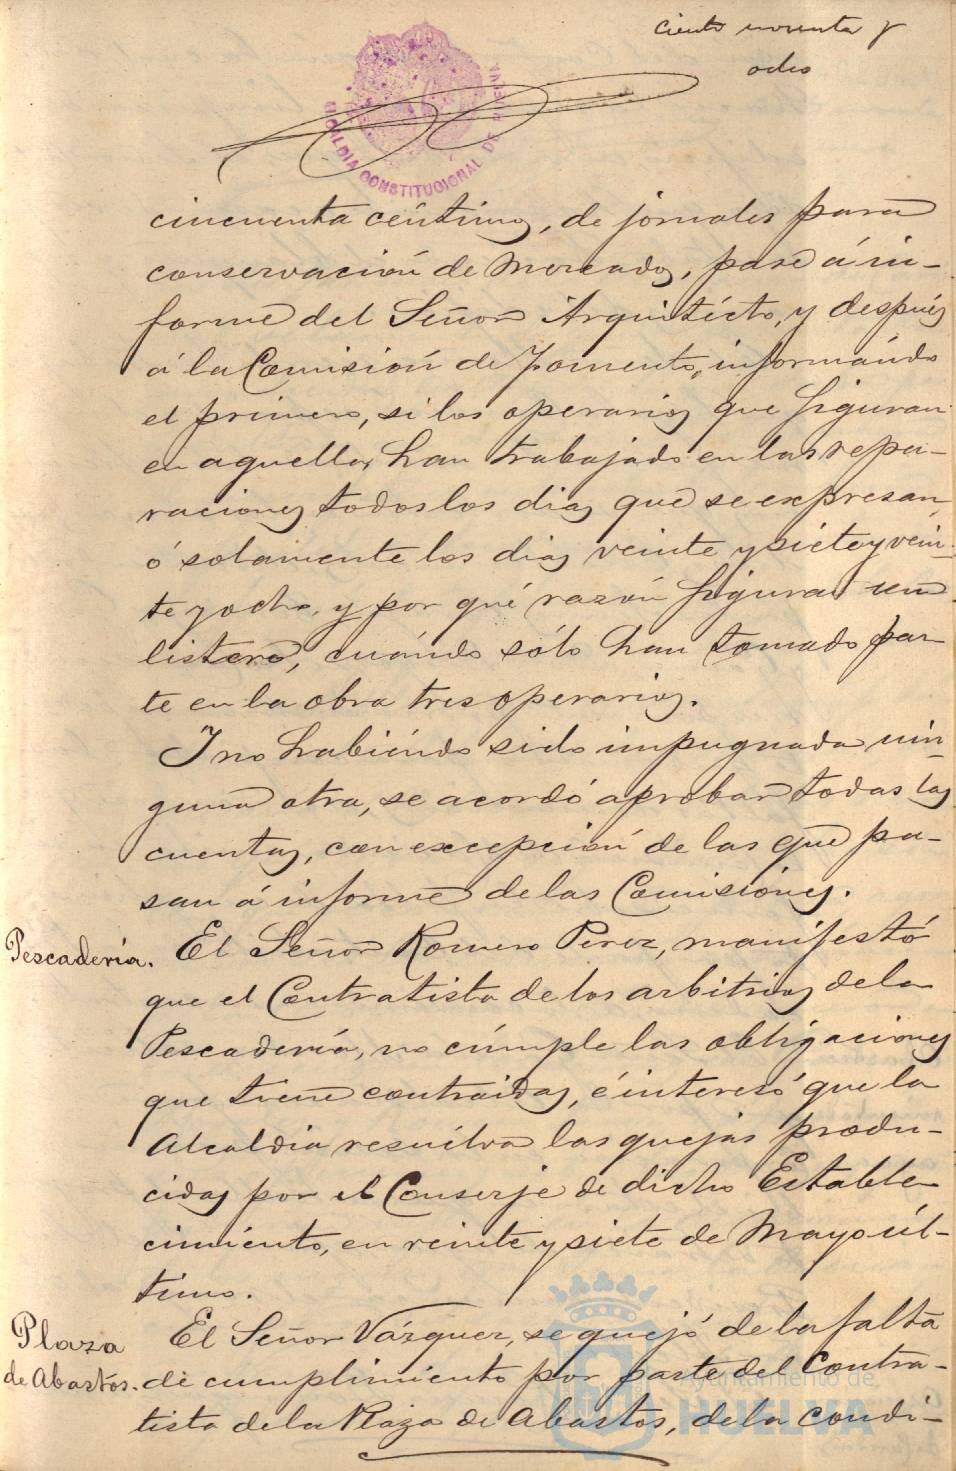 ciento noventa y
ocho
ALCALDIA CONSTITUCIONAL DE HUELVA
cincuenta céntimos, de jornales para
conservación de Mercados, pase á in-
forme del Señor Arquitécto, y después
á la Comisión de Fomento, informándo
el primero, si los operarios que figuran
en aquellos, han trabajado en las repa-
raciones todos los dias que se expresan,
ó solamente los dias veinte y siete y vein-
te y ocho, y por qué razón figura un
listero, cuándo sólo han tomado par-
te en la obra tres operarios.
Y no habiéndo sido impugnada nin-
guna otra, se acordó aprobar todas las
cuentas, con excepción de las que pa-
san á informe de las Comisiónes.
Pescadería. El Señor Romero Perez, manifestó
que el Contratista de los arbitrios de la
Pescadería, no cúmple las obligaciones
que tiene contraidas, é interesó que la
Alcaldia resuélva las quejas produ-
cidas por el Conserje de dicho Estable-
cimiento, en veinte y siete de Mayo úl-
timo.
Plaza
de Abastos.
El Señor Vázquez, se quejó de la falta
de cumplimiento por parte del Contra-
tista de la Plaza de Abastos, de la condi-
Ayuntamiento de
HUELVA